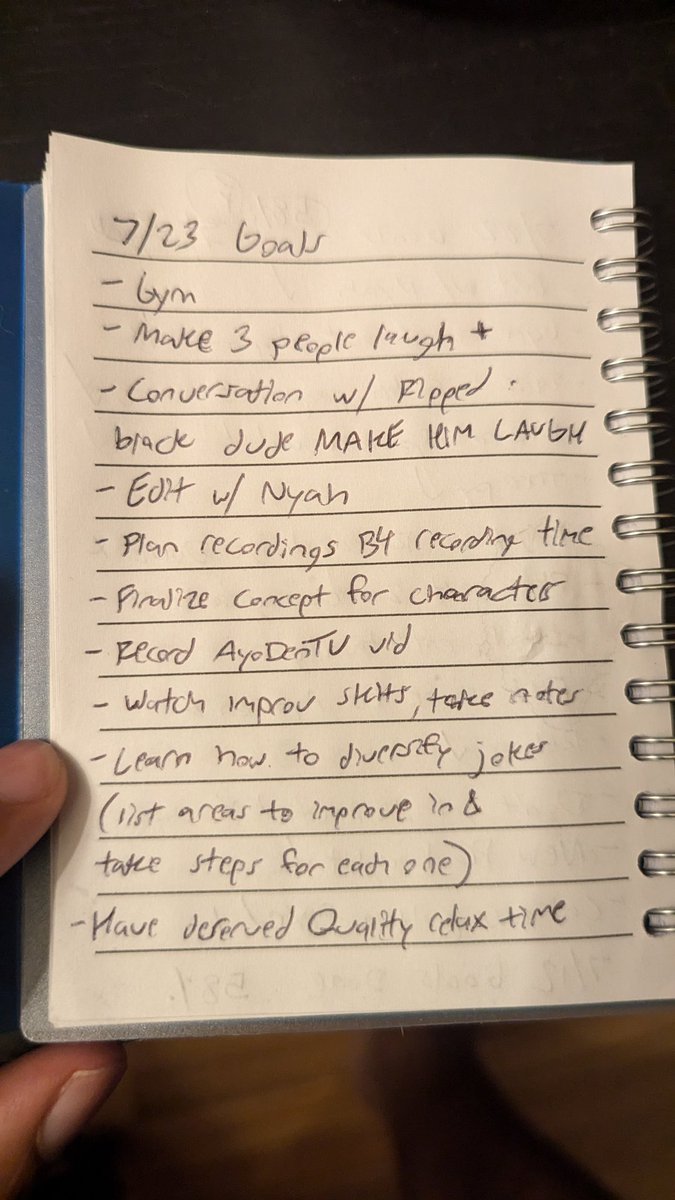 7/23 Goals
- Gym
- Make 3 people laugh +
- Conversation w/ Ripped
black dude MAKE HIM LAUGH
- Edit w/ Nyah
- Plan recordings B4 recording time
- Finalize concept for character
- Record AyoDenTV vid
- Watch improv skits, take notes
- Learn how to diversify jokes
(list areas to improve in &
take steps for each one)
- Have deserved Quality relax time